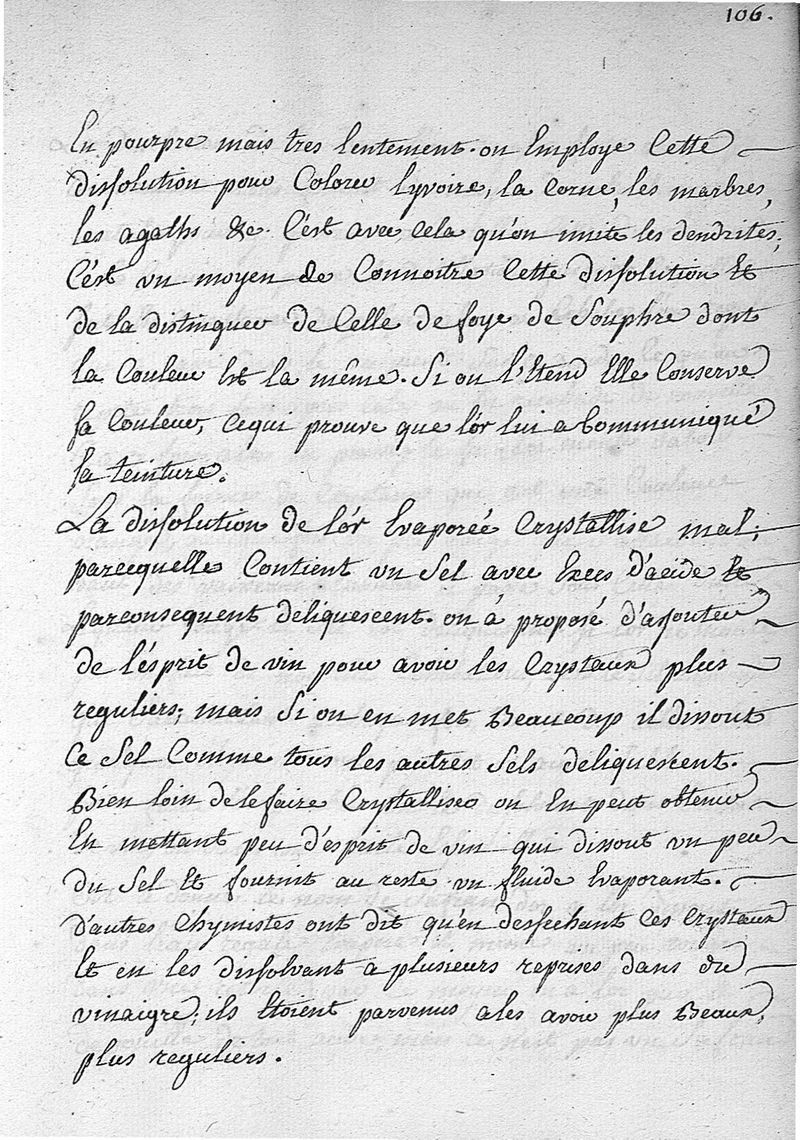 106.
En pourpre mais tres lentement. on Employe Cette
dissolution pour Colorer Lyvoire, la Corne, les marbres,
les agaths &c. C'ést avec cela qu'on imite les dendrites;
C'ést un moyen de Connoitre Cette dissolution Et
de la distinguer de Celle de foye de Souphre dont
la Couleur Est la même. Si on l'Etend Elle Conserve
sa Couleur, cequi prouve que l'ór lui a Communiqué
sa teinture.
La dissolution de l'ór Evaporéé Crystallise mal;
parcequelle Contient un Sel avec Exces D'acide Et
parconsequent déliquescent. on à proposé d'ajouter
de l'ésprit de vin pour avoir les Crystaux plus
reguliers; mais Si on en met Beaucoup il dissout
Ce Sel Comme tous les autres Sels déliquescent.
Bien loin de le faire Crystalliser on En peut obtenir
En mettant peu d'ésprit de vin qui dissout un peu
du Sel Et fournit au reste un fluide Evaporant.
D'autres Chymistes ont dit qu'én dessechant Ces Crystaux
Et en les dissolvant a plusieurs reprises dans du
vinaigre; ils Etoient parvenus a les avoir plus Beaux,
plus reguliers.